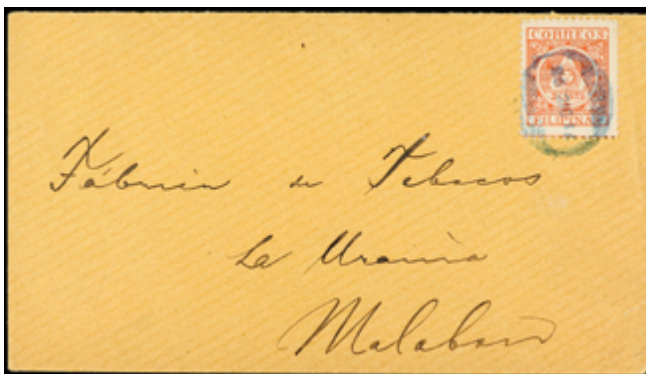 CORREOS
FILIPINAS
Fábrica de Tabacos
La Urania
Malabon